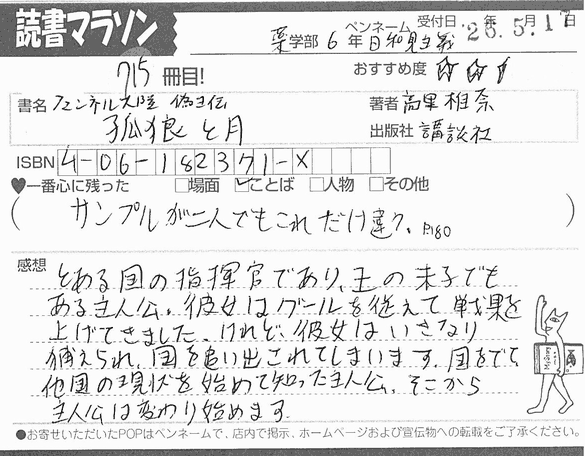 読書マラソン
薬学部 6年 ペンネーム 日和見主義 受付日 26.5.17日
715冊目!
おすすめ度 ☆☆
書名 フェンネル大陸 偽王伝
孤狼と月
著者 高里椎奈
出版社 講談社
ISBN 4-06-182371-X
♥一番心に残った □場面 ☑ことば □人物 □その他
(サンプルが二人でもこれだけ違う。P180)
感想 とある国の指揮官であり、王の末子でも
ある主人公。彼女はグールを従えて戦果を
上げてきました。けれど、彼女はいきなり
捕えられ、国を追い出されてしまいます。国をでて
他国の現状を始めて知った主人公。そこから
主人公は変わり始めます。
●お寄せいただいたPOPはペンネームで、店内で掲示、ホームページおよび宣伝物への転載をご了承ください。